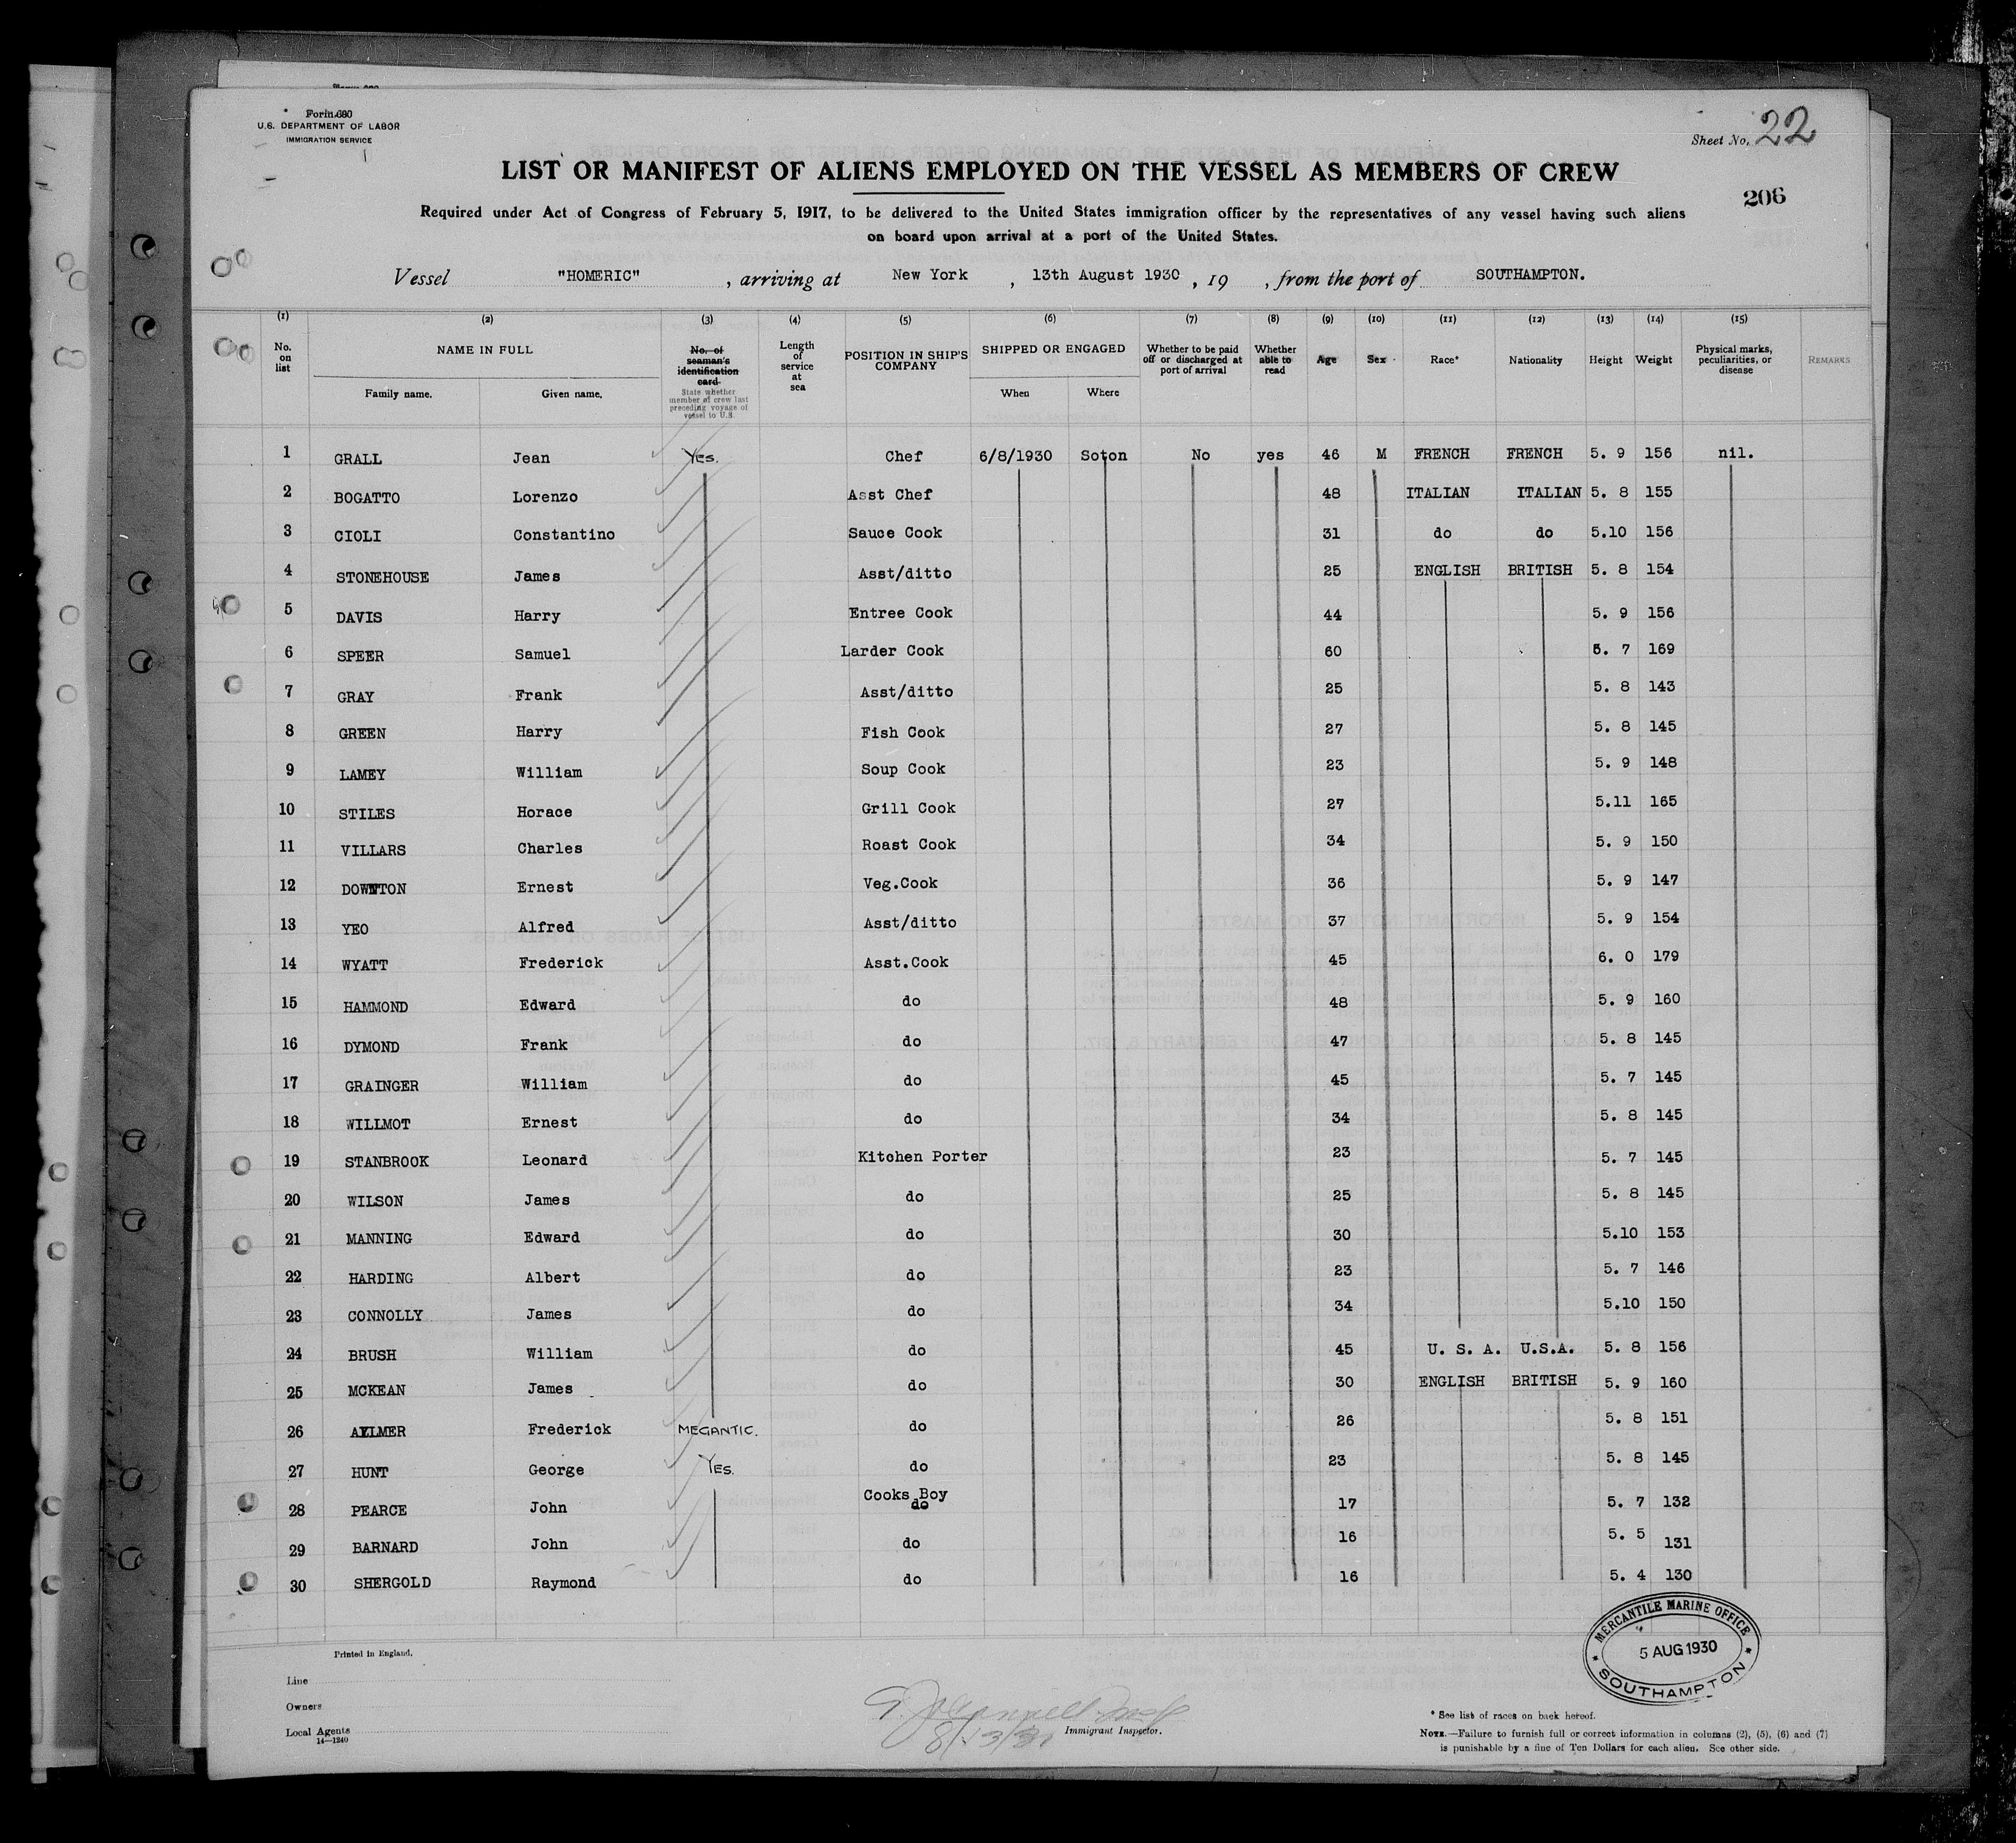 Form 680
U.S. DEPARTMENT OF LABOR
IMMIGRATION SERVICE
Sheet No. 22
LIST OR MANIFEST OF ALIENS EMPLOYED ON THE VESSEL AS MEMBERS OF CREW
206
Required under Act of Congress of February 5, 1917, to be delivered to the United States immigration officer by the representatives of any vessel having such aliens
on board upon arrival at a port of the United States.
Vessel "HOMERIC", arriving at New York, 13th August 1930, 19 , from the port of SOUTHAMPTON.
(1) (2) (3) (4) (5) (6) (7) (8) (9) (10) (11) (12) (13) (14) (15)
No. on list NAME IN FULL Family name. Given name. No. of seaman's identification card State whether member of crew last preceding voyage of vessel to U.S. Length of service at sea POSITION IN SHIP'S COMPANY SHIPPED OR ENGAGED When Where Whether to be paid off or discharged at port of arrival Whether able to read Age Sex Race* Nationality Height Weight Physical marks, peculiarities, or disease REMARKS
1 GRALL Jean Yes. Chef 6/8/1930 Soton No yes 46 M FRENCH FRENCH 5. 9 156 nil.
2 BOGATTO Lorenzo Asst Chef 48 ITALIAN ITALIAN 5. 8 155
3 CIOLI Constantino Sauce Cook 31 do do 5.10 156
4 STONEHOUSE James Asst/ditto 25 ENGLISH BRITISH 5. 8 154
5 DAVIS Harry Entree Cook 44 5. 9 156
6 SPEER Samuel Larder Cook 60 5. 7 169
7 GRAY Frank Asst/ditto 25 5. 8 143
8 GREEN Harry Fish Cook 27 5. 8 145
9 LAMEY William Soup Cook 23 5. 9 148
10 STILES Horace Grill Cook 27 5.11 165
11 VILLARS Charles Roast Cook 34 5. 9 150
12 DOWNTON Ernest Veg.Cook 36 5. 9 147
13 YEO Alfred Asst/ditto 37 5. 9 154
14 WYATT Frederick Asst.Cook 45 6. 0 179
15 HAMMOND Edward do 48 5. 9 160
16 DYMOND Frank do 47 5. 8 145
17 GRAINGER William do 45 5. 7 145
18 WILLMOT Ernest do 34 5. 8 145
19 STANBROOK Leonard Kitchen Porter 23 5. 7 145
20 WILSON James do 25 5. 8 145
21 MANNING Edward do 30 5.10 153
22 HARDING Albert do 23 5. 7 146
23 CONNOLLY James do 34 5.10 150
24 BRUSH William do 45 U. S. A. U.S.A. 5. 8 156
25 MCKEAN James do 30 ENGLISH BRITISH 5. 9 160
26 Frederick MEGANTIC. do 26 5. 8 151
27 HUNT George YES. do 23 5. 8 145
28 PEARCE John Cooks Boy do 17 5. 7 132
29 BARNARD John do 16 5. 5 131
30 SHERGOLD Raymond do 16 5. 4 130
MERCANTILE MARINE OFFICE
5 AUG 1930
SOUTHAMPTON
Printed in England.
Line
Owners
Local Agents
14—1240
8/13/30
Immigrant Inspector.
* See list of races on back hereof.
NOTE.—Failure to furnish full or correct information in columns (2), (5), (6) and (7)
is punishable by a fine of Ten Dollars for each alien. See other side.